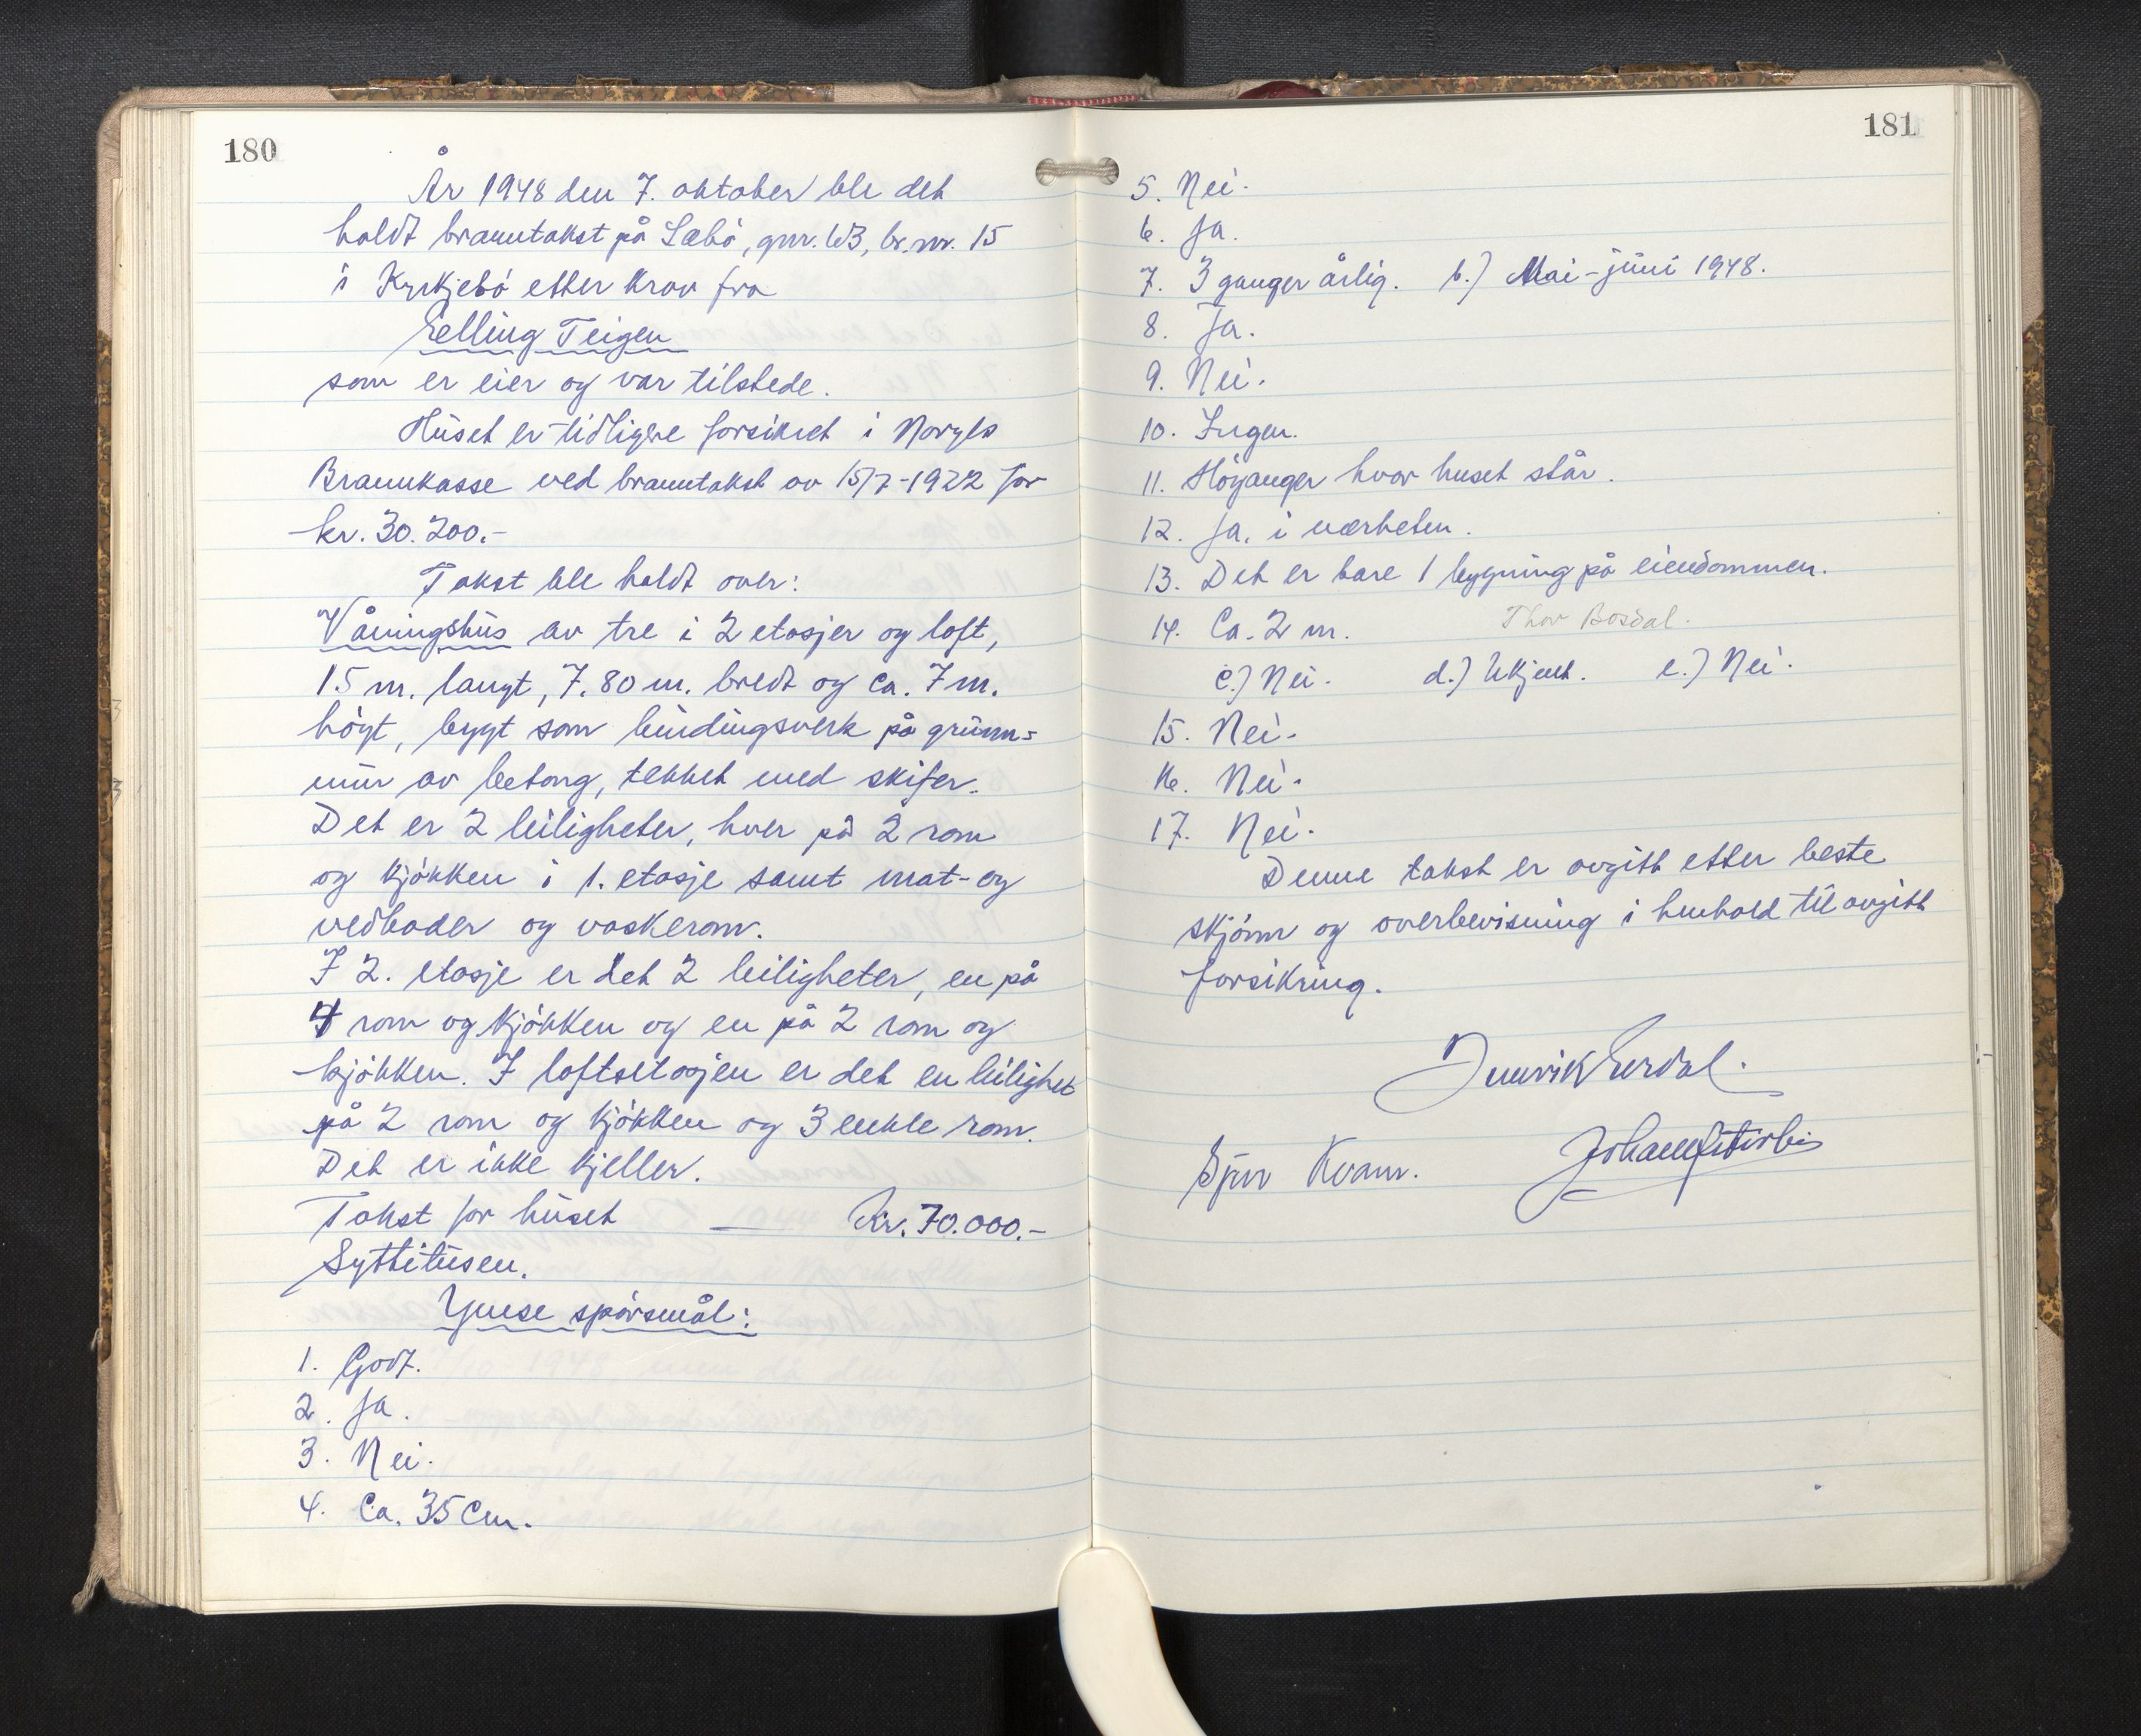 180
År 1948 den 7. oktober ble det
holdt branntakst på Læbö, gnr. 63, br. nr. 15
i Kyrkjebö etter krav fra
Elling Teigen
som er eier og var tilstede.
Huset er tidligere forsikret i Norges
Brannkasse ved branntakst av 15/7-1922 for
kr. 30.200.-
Takst ble holdt over:
Våningshus av tre i 2 etasjer og loft,
15 m. langt, 7.80 m. bredt og ca. 7 m.
högt, bygt som bindingsverk på grunn=
mur av betong, tekket med skifer.
Det er 2 leiligheter, hver på 2 rom
og kjökken i 1. etasje samt mat- og
vedboder og vaskerom.
I 2. etasje er det 2 leiligheter, en på
4 rom og kjökken og en på 2 rom og
kjökken. I loftsetasjen er det en leilighet
på 2 rom og kjökken og 3 enkle rom.
Det er ikke kjeller.
Takst for huset — Kr. 70.000.-
Syttitusen.
Ymse spörsmål:
1. Godt.
2. Ja.
3. Nei.
4. Ca. 35 Cm.
181
5. Nei.
6. Ja.
7. 3 ganger årlig. b.) Mai-juni 1948.
8. Ja.
9. Nei.
10. Ingen.
11. Höyanger hvor huset står.
12. Ja, i nærheten.
13. Det er bare 1 bygning på eiendommen.
14. Ca. 2 m. Thor Bosdal.
c.) Nei. d.) Ukjent. e.) Nei.
15. Nei.
16. Nei.
17. Nei.
Denne takst er avgitt etter beste
skjönn og overbevisning i henhold til avgitt
forsikring.
Erdal.
Kvam. Johan